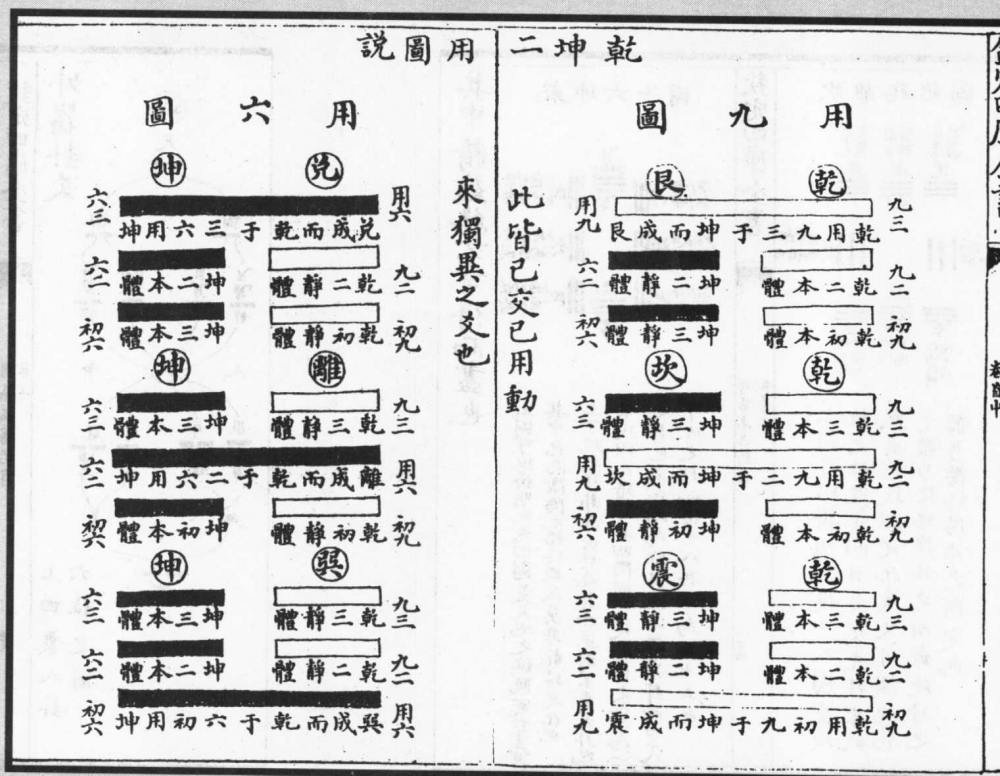 乾坤二用圖說
用九圖
乾 艮
九三 乾用九三于坤而成艮 用九
九二 乾二本體 坤二靜體 六二
初九 乾初本體 坤三靜體 初六
乾 坎
九三 乾三本體 坤三靜體 六三
九二 乾用九二于坤而成坎 用九
初九 乾初本體 坤初靜體 初六
乾 震
九三 乾三本體 坤三靜體 六三
九二 乾二本體 坤二靜體 六二
初九 乾用初九于坤而成震 用九
此皆已交已用動
來獨異之爻也
用六圖
兌 坤
用六 坤用六三于乾而成兌 六三
九二 乾二靜體 坤二本體 六二
初九 乾初靜體 坤三本體 初六
離 坤
九三 乾三靜體 坤三本體 六三
用六 坤用六二于乾而成離 六二
初九 乾初靜體 坤初本體 初六
巽 坤
九三 乾三靜體 坤三本體 六三
九二 乾二靜體 坤二本體 六二
用六 坤用初六于乾而成巽 初六